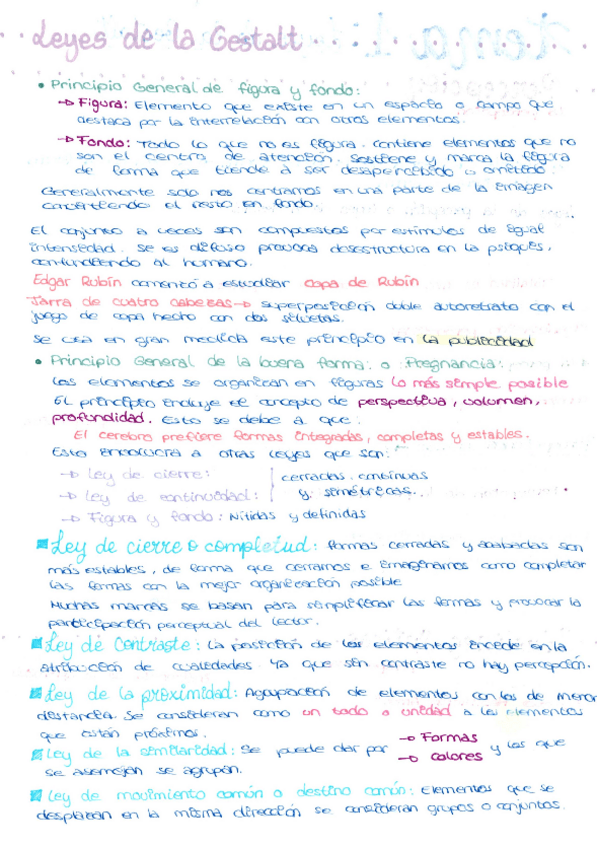 Leyes de la Gestalt
• Principio General de figura y fondo:
→ Figura: Elemento que existe en un espacio o campo que
destaca por la interrelación con otros elementos.
→ Fondo: Todo lo que no es figura. contiene elementos que no
son el centro de atención. Sostiene y marca la figura
de forma que tiende a ser desapercibido u omitido.
Generalmente solo nos centramos en una parte de la imagen
convirtiendo el resto en fondo.
El conjunto a veces son compuestos por estímulos de igual
intensidad. se es difuso provoca desestructura en la psiques,
confundiendo al humano.
Edgar Rubín comenzó a estudiar copa de Rubín
Jarra de cuatro cabezas → superposición doble autoretrato con el
juego de copa hecho con dos siluetas.
se usa en gran medida este principio en la publicidad
• Principio General de la buena forma: o Pregnancia:
Los elementos se organizan en figuras lo más simple posible
El principio incluye el concepto de perspectiva, volumen,
profundidad. Esto se debe a que.
El cerebro prefiere formas integradas, completas y estables.
Esto involucra a otras leyes que son:
→ Ley de cierre: cerradas. continuas
→ Ley de continuidad: y. simétricas.
→ Figura y fondo: Nítidas y definidas
Ley de cierre o completud: formas cerradas y acabadas son
más estables, de forma que cerramos e imaginamos como completar
las formas con la mejor organización posible
Muchas marcas se basan para simplificar las formas y provocar la
participación perceptual del lector.
Ley de Contraste: La posición de los elementos incide en la
atribución de cualidades ya que sin contraste no hay percepción.
Ley de la proximidad: Agrupación de elementos con los de menor
distancia. Se consideran como un todo o unidad a los elementos
que están próximos.
Ley de la similaridad: Se puede dar por → Formas → colores y los que
se asemejan se agrupan.
Ley de movimiento común o destino común: Elementos que se
desplazan en la misma dirección se consideran grupos o conjuntos.